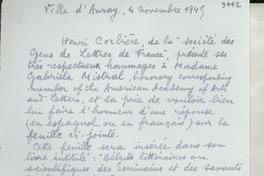 3442
Ville d'Avray, 4 novembre 1949
Henri Corbière, de la "société des
Gens de Lettres de France", présente ses
très respectueux hommages à Madame
Gabriela Mistral, honorary corresponding
member of the American Academy of Arts
and Letters, et la prie de vouloir bien
lui faire l'honneur d'une réponse
(en espagnol ou en français) sur la
feuille ci-jointe.
Cette feuille sera insérée dans son
livre intitulé: "Débuts littéraires ou
scientifiques des écrivains et des savants